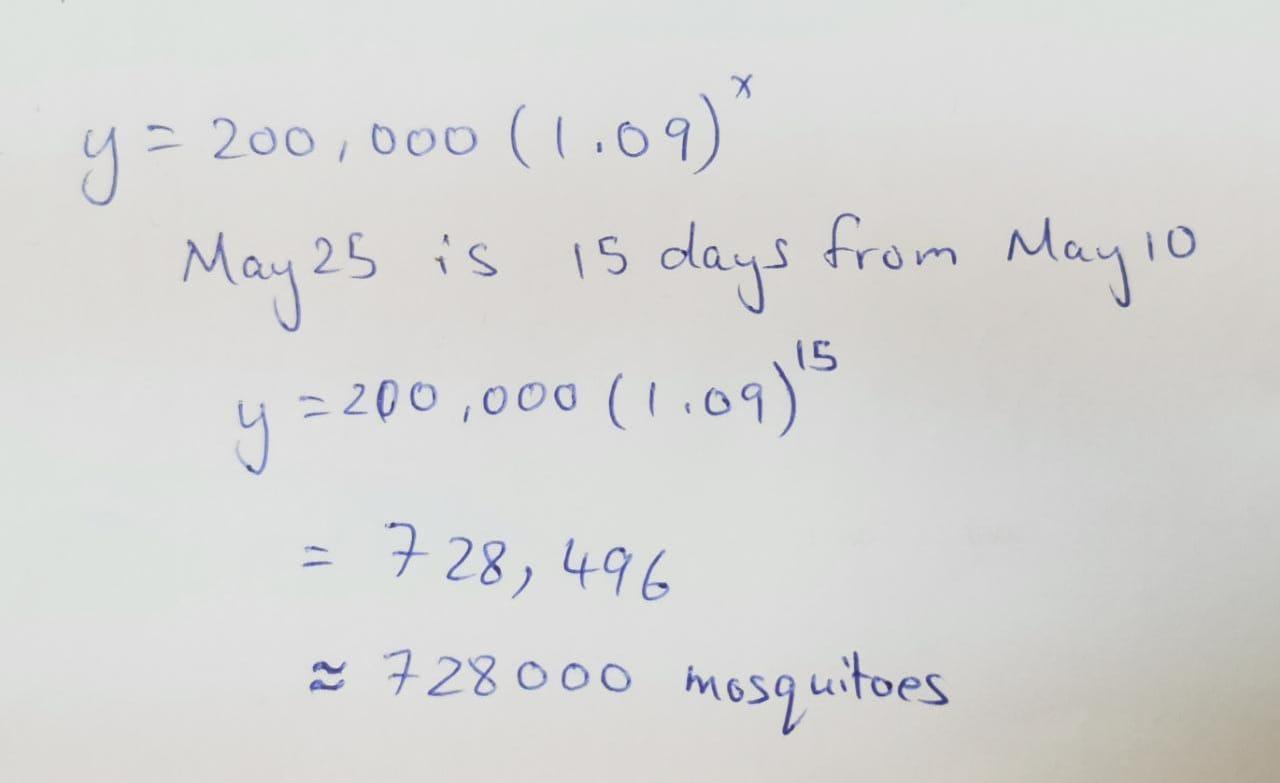 y = 200,000 (1.09)^x
May 25 is 15 days from May 10
y = 200,000 (1.09)^15
= 728,496
≈ 728000 mosquitoes